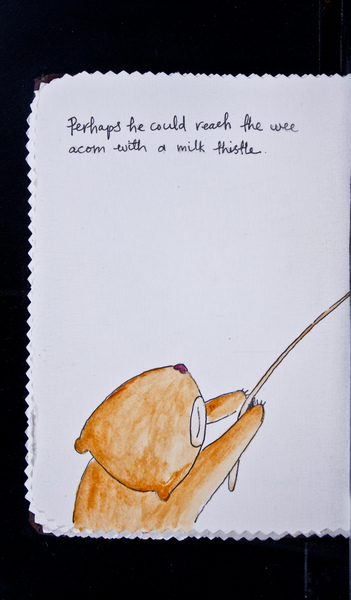 Perhaps he could reach the wee
acorn with a milk thistle.